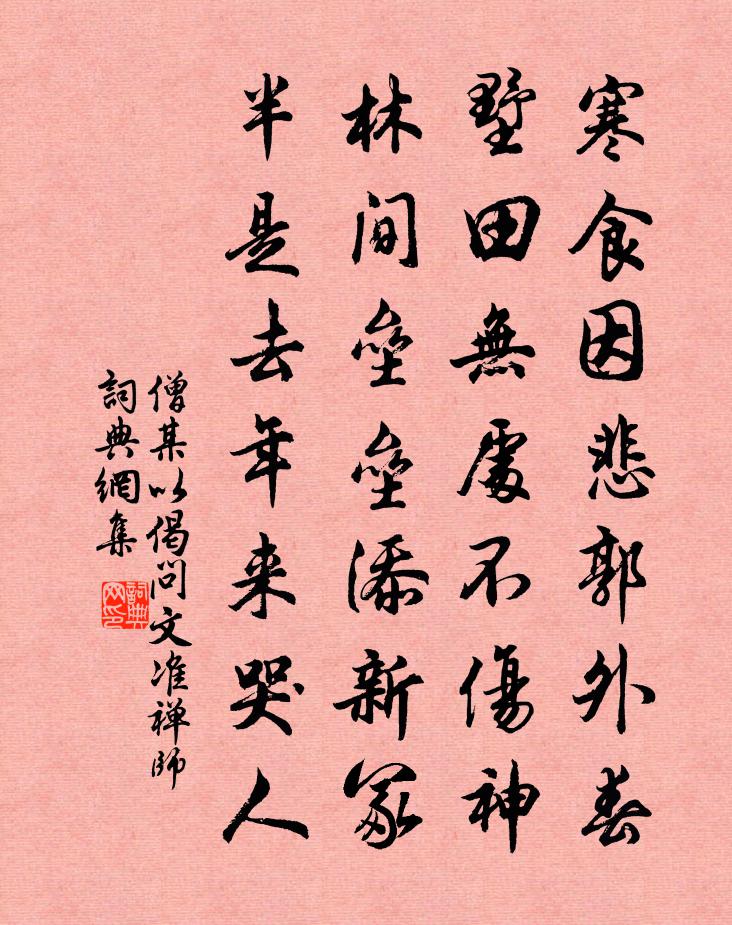 寒食因悲郭外春
墅田無處不傷神
林间壘壘添新冢
半是去年来哭人
僧某以偈问文准禅師
詞典網集
詞典网印